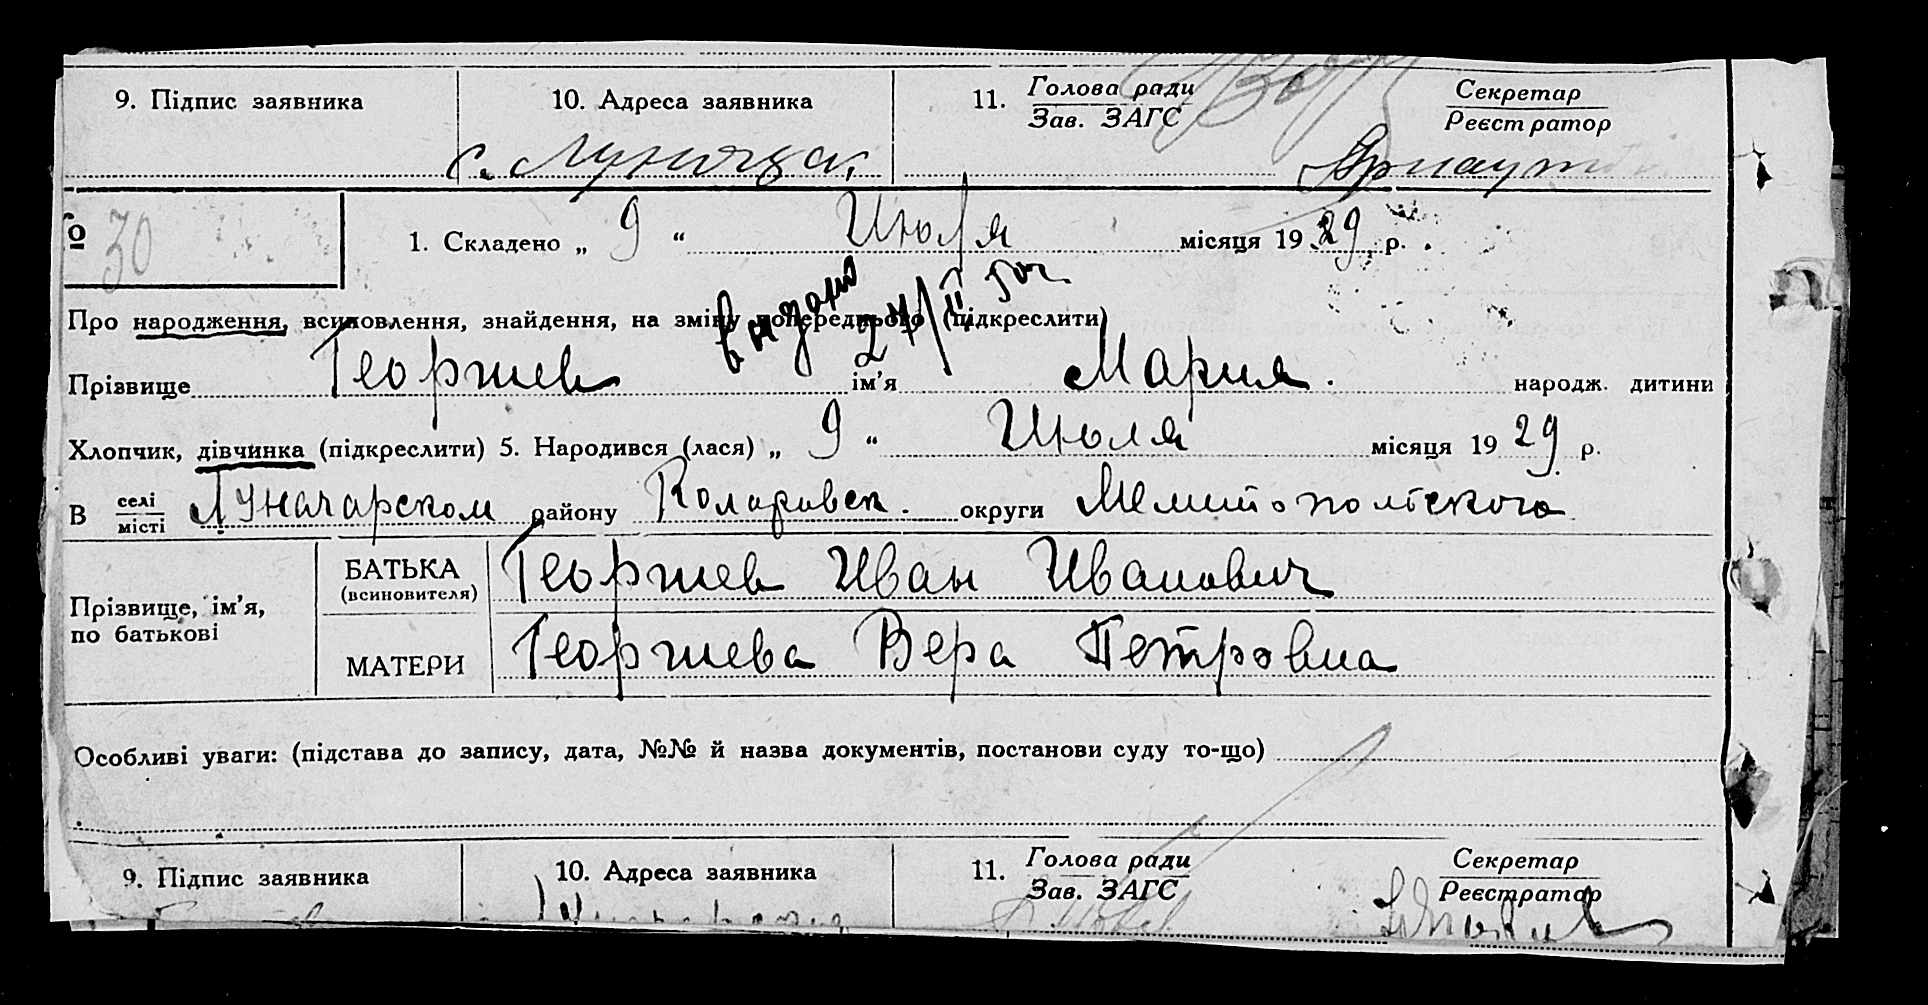 9. Підпис заявника 10. Адреса заявника 11. Голова ради Секретар
Зав. ЗАГС Реєстратор
с. Арнаут
№ 30 1. Складено „ 9 “ Июля місяця 19 29 р.
выдано 27/II 50г
Про народження, всиновлення, знайдення, на зміну попереднього (підкреслити)
Прізвище Георгиев ім’я Мария. народж. дитини
Хлопчик, дівчинка (підкреслити) 5. Народився (лася) „ 9 “ Июля місяця 19 29 р.
В селі Луначарском району Коларовск. округи Мелитопольского
місті
Прізвище, ім’я, по батькові БАТЬКА (всиновителя) Георгиев Иван Иванович
МАТЕРИ Георгиева Вера Петровна
Особливі уваги: (підстава до запису, дата, №№ й назва документів, постанови суду то-що)
9. Підпис заявника 10. Адреса заявника 11. Голова ради Секретар
Зав. ЗАГС Реєстратор